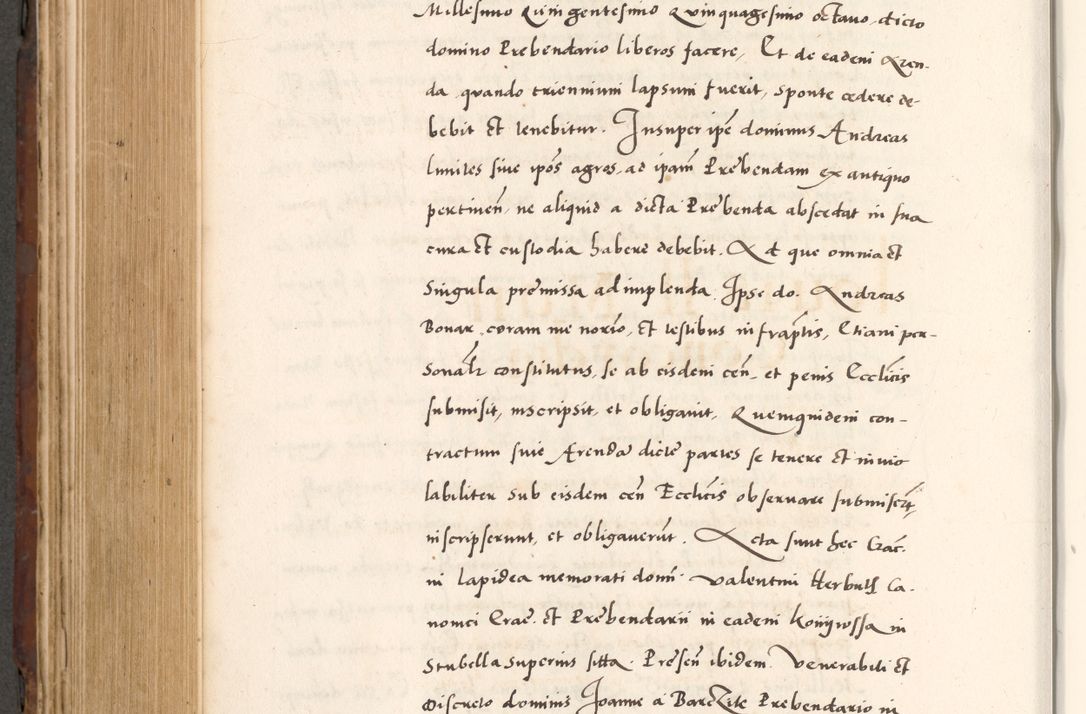 Millesimo Quingentesimo Quinquagesimo octauo, dicto
domino Prebendario liberos facere, Et de eadem Aren-
da, quando triennium lapsum fuerit, sponte cedere de-
bebit et tenebitur. Insuper ipē dominus Andreas
limites siue ipōs agros, ad ipām Prebendam ex antiquo
pertineñ, ne aliquid a dicta Prebenda abscedat in sua
cura et custodia habere debebit. Ad que omnia et
Singula premissa adimplenda. Ipse do. Andreas
Bonar, coram me notio, et testibus infraptis, Etiam per-
sonalr constitutus, se ab eisdem ceñ. et penis Ecclicis
submisit, inscripsit, et obligauit, Quemquidem con-
tractum siue Arenda dicte partes se tenere et inuio
labiliter sub eisdem ceñ Ecclicis obseruare submisert,
inscripserunt, et obligauerūt. Acta sunt hec Crac.
in lapidea memorati domī. Valentini Herbult Ca-
nonici Crac. et Prebendarii in eadem Koniyossa in
Stubella superius sitta. Preseñ ibidem. Venerabili et
Discreto dominis Joanne a Barczite Prebendario in